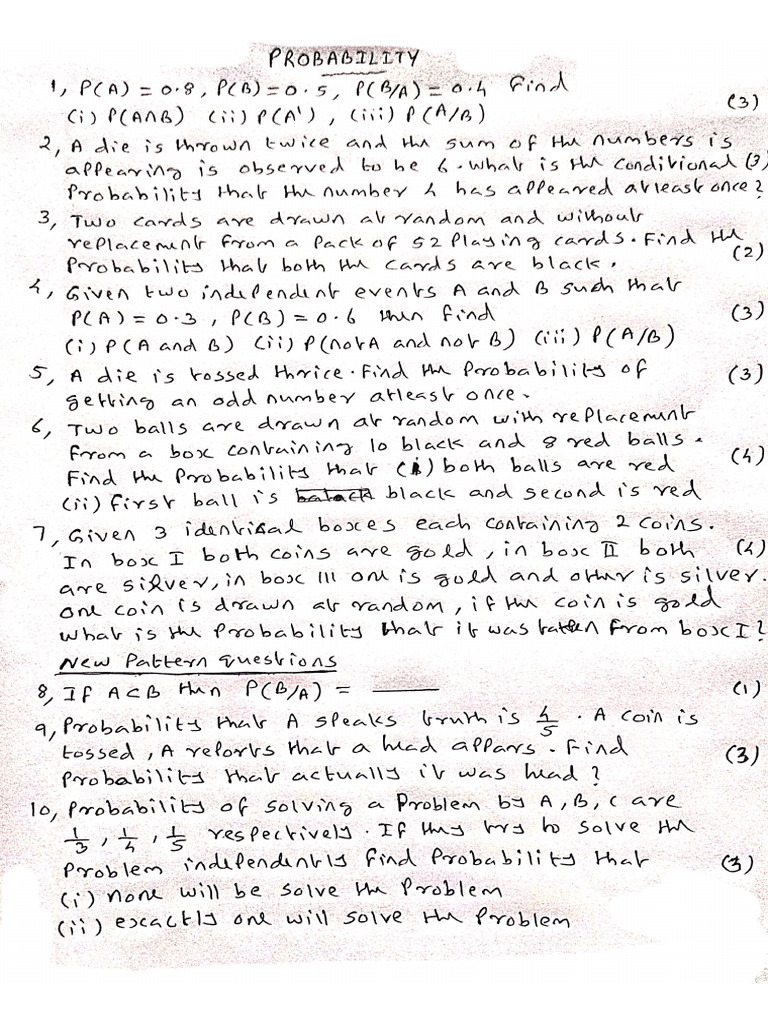 PROBABILITY
1, P(A) = 0.8, P(B) = 0.5, P(B/A) = 0.4 Find
(i) P(A∩B) (ii) P(A'), (iii) P(A/B) (3)
2, A die is thrown twice and the sum of the numbers is
appearing is observed to be 6. What is the conditional (3)
Probability that the number 4 has appeared atleast once?
3, Two cards are drawn at random and without
replacement from a pack of 52 playing cards. Find the
Probability that both the cards are black. (2)
4, Given two independent events A and B such that
P(A) = 0.3, P(B) = 0.6 then find (3)
(i) P(A and B) (ii) P(not A and not B) (iii) P(A/B)
5, A die is tossed thrice. Find the Probability of (3)
getting an odd number atleast once.
6, Two balls are drawn at random with replacement
from a box containing 10 black and 8 red balls.
Find the Probability that (i) both balls are red (4)
(ii) first ball is black and second is red
7, Given 3 identical boxes each containing 2 coins.
In box I both coins are gold, in box II both (4)
are silver, in box III one is gold and other is silver.
one coin is drawn at random, if the coin is gold
what is the Probability that it was taken from box I?
New Pattern questions
8, If A⊂B then P(B/A) = ____ (1)
9, Probability that A speaks truth is 4/5. A coin is
tossed, A reports that a head appars. Find (3)
Probability that actually it was head?
10, Probability of solving a Problem by A, B, C are
1/3, 1/4, 1/5 respectively. If they try to solve the
Problem independently find Probability that (3)
(i) none will be solve the Problem
(ii) exactly one will solve the Problem